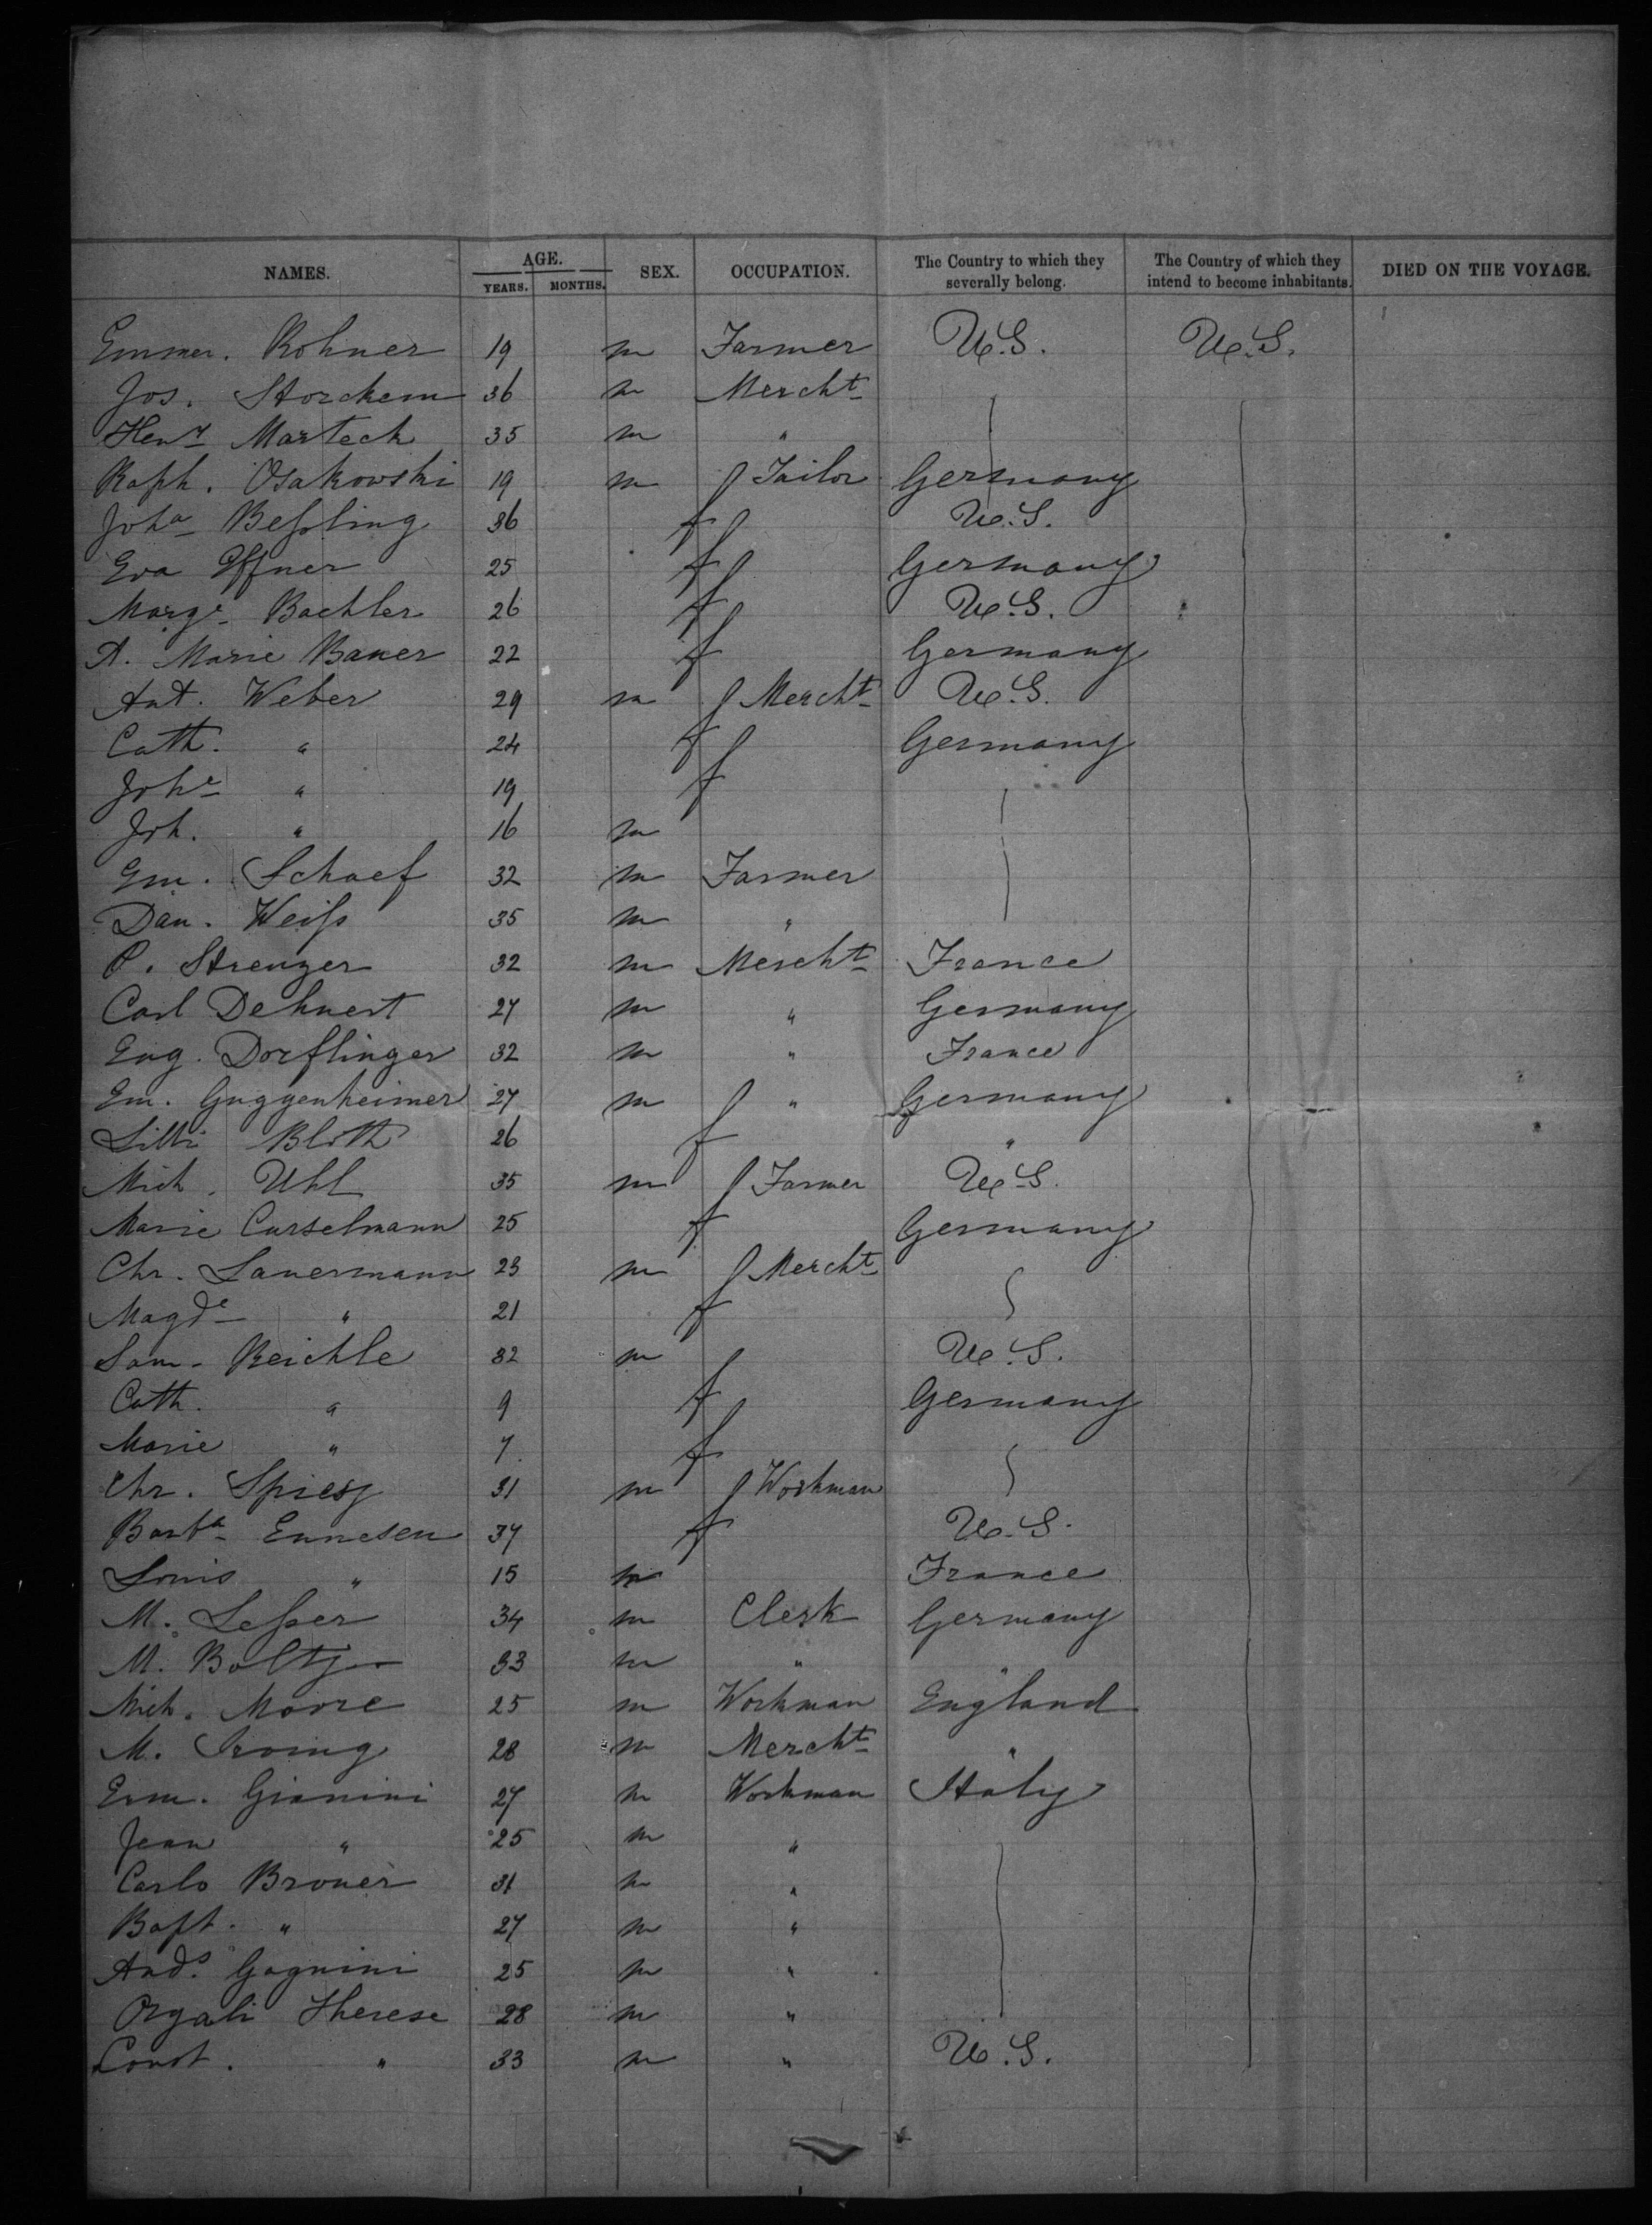 NAMES. AGE. YEARS. MONTHS. SEX. OCCUPATION. The Country to which they severally belong. The Country of which they intend to become inhabitants. DIED ON THE VOYAGE.
Emmer. Rohner 19 m Farmer U.S. U.S.
Jos. Storckem 36 m Mercht
Henr Marteck 35 m "
Raph. Osakowski 19 m Tailor Germany
Joha Beßling 36 f U.S.
Eva Effner 25 f Germany
Marge Bachler 26 f U.S.
A. Marie Bauer 22 f Germany
Ant. Weber 29 m Mercht U.S.
Cath. " 24 f Germany
Johe " 19 f
Joh. " 16 m
Em. Schaef 32 m Farmer
Dan. Weiß 35 m "
P. Strenzer 32 m Mercht France
Carl Dehnert 27 m " Germany
Eug. Dorflinger 32 m " France
Em. Guggenheimer 27 m " Germany
Litti Bloth 26 f "
Mich. Uhl 35 m Farmer U.S.
Marie Curselmann 25 f Germany
Chr. Lauermann 23 m Mercht
Magde " 21 f
Sam. Reichle 32 m U.S.
Cath. " 9 f Germany
Marie " 7 f
Chr. Spiesz 31 m Workman
Barba Ennesen 37 f U.S.
Louis " 15 m France
M. Leßer 34 m Clerk Germany
M. Boltz 33 m " "
Mich. Moore 25 m Workman England
M. Irving 28 m Mercht "
Erm. Gianini 27 m Workman Italy
Jean " 25 m "
Carlo Broner 31 m "
Bapt. " 27 m "
Ands. Gagnini 25 m "
Orgali Therese 28 m "
Const. " 33 m " U.S.